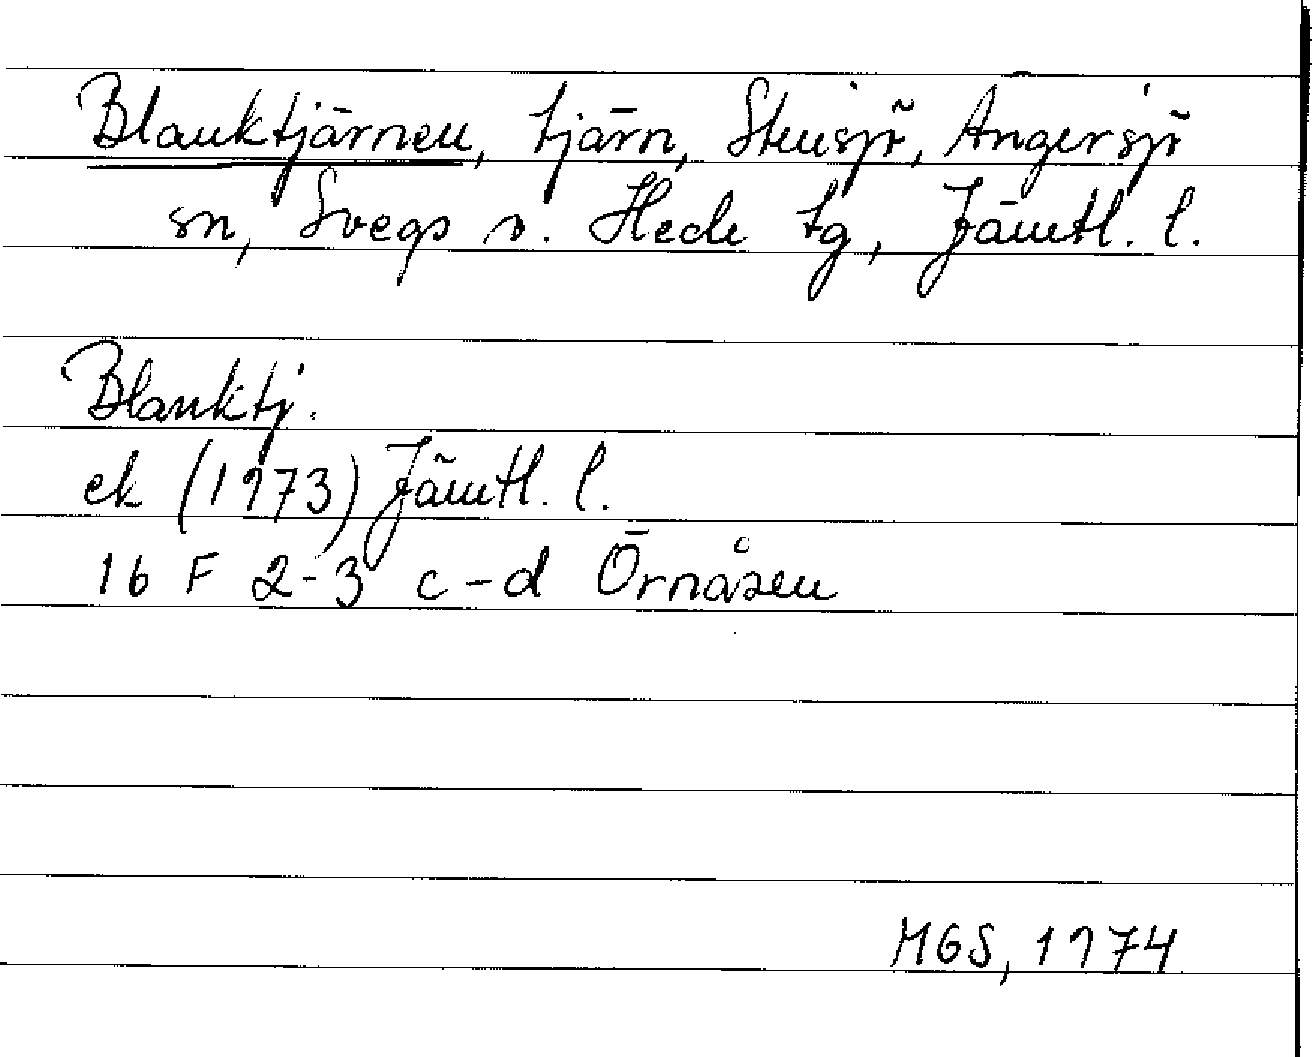 Blanktjärnen, tjärn, Stensjö, Ängersjö
sn, Svegs o. Hede tg, Jämtl. l.
Blanktj.
ek (1973) Jämtl. l.
16 F 2-3 c-d Örnåsen
MGS, 1974